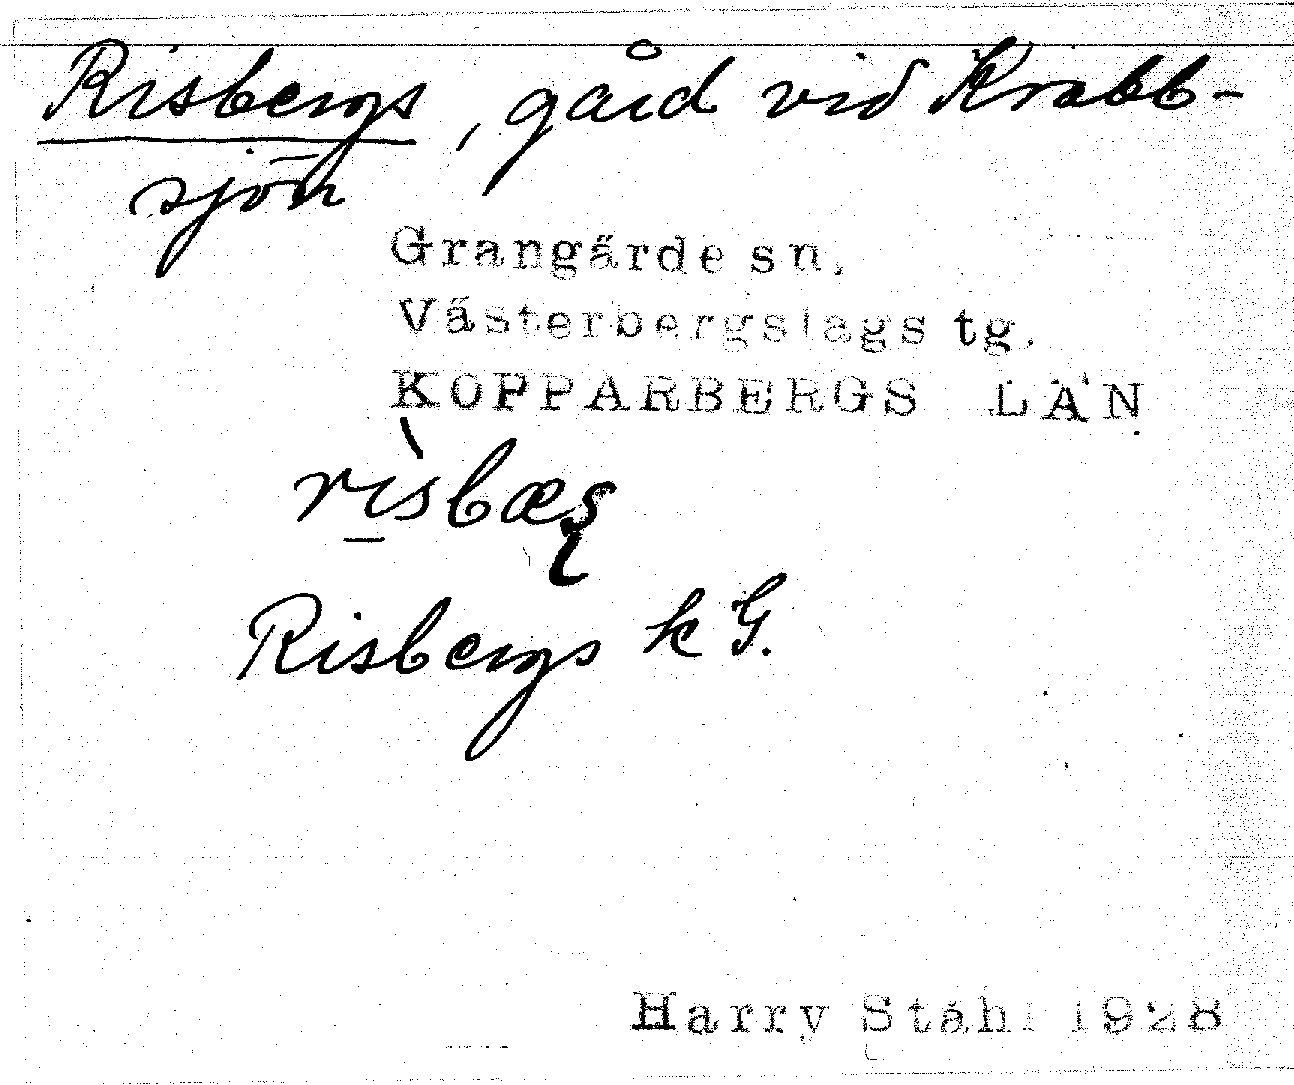 Risbergs, gård vid Krabb-
sjön
Grangärde sn.
Västerbergslags tg.
KOPPARBERGS LÄN
rìsbæș
Risbergs k G.
Harry Ståhl 1928